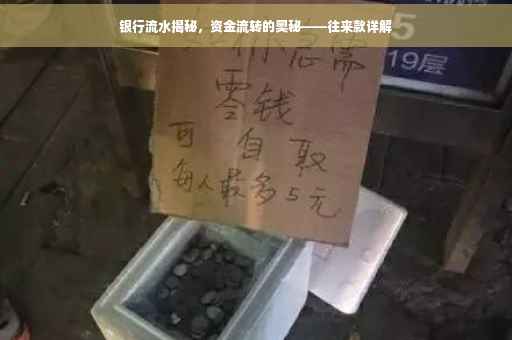 银行流水揭秘，资金流转的奥秘——往来款详解
你急需
零钱
可自取
每人最多5元
5
19层